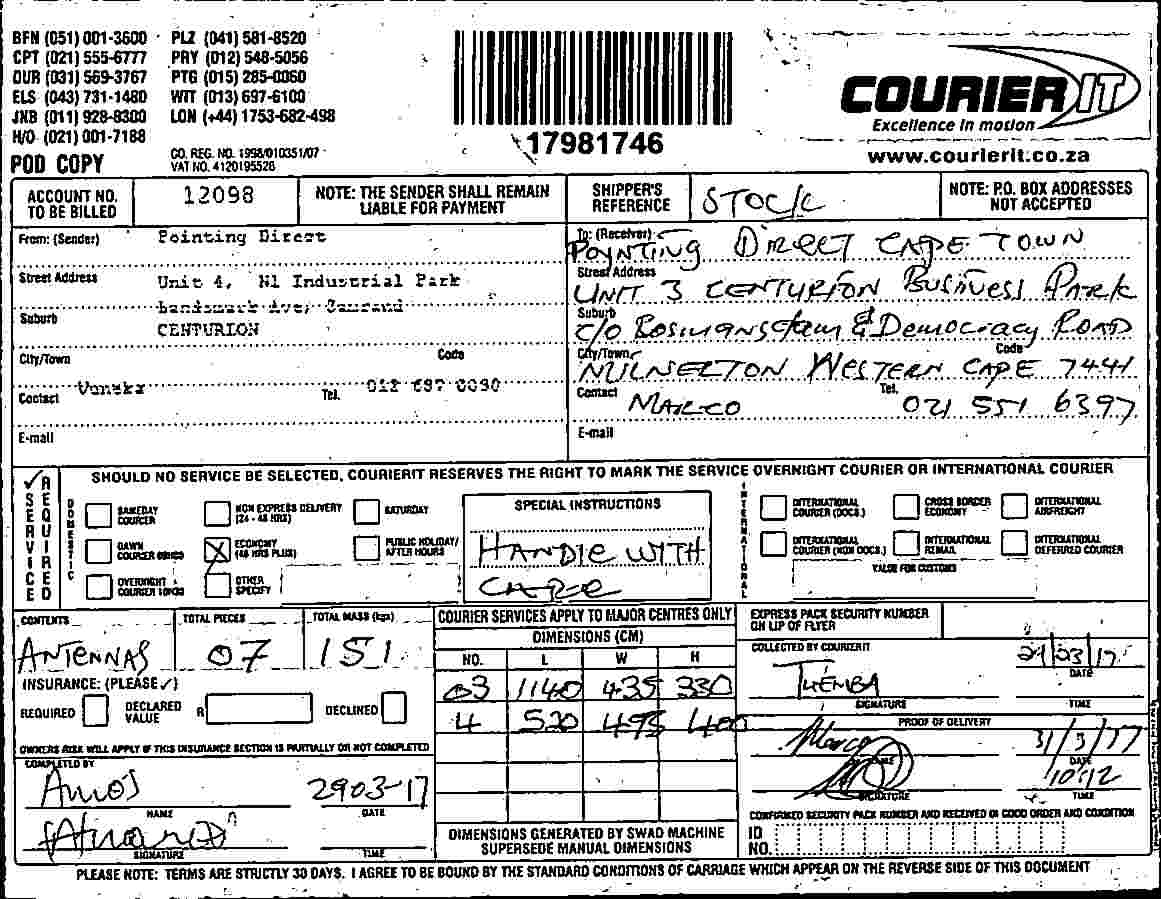 BFN (051) 001-3600 PLZ (041) 581-8520
CPT (021) 555-6777 PRY (012) 548-5056
DUR (031) 569-3767 PTG (015) 285-0060
ELS (043) 731-1480 WIT (013) 697-6100
JNB (011) 928-8300 LON (+44) 1753-682-498
H/O (021) 001-7188
POD COPY
CO. REG. NO. 1998/010351/07
VAT NO. 4120195528
17981746
COURIER IT
Excellence in motion
www.courierit.co.za
ACCOUNT NO. TO BE BILLED 12098
NOTE: THE SENDER SHALL REMAIN LIABLE FOR PAYMENT
SHIPPER'S REFERENCE STOCK
NOTE: P.O. BOX ADDRESSES NOT ACCEPTED
From: (Sender) Pointing Direct
Street Address Unit 4, N1 Industrial Park
Suburb
CENTURION
City/Town Code
Contact Tel. 012 657 0050
E-mail
To: (Receiver) POYNTING DIRECT CAPE TOWN
Street Address UNIT 3 CENTURION BUSINESS PARK
Suburb C/O BOSMANSDAM & DEMOCRACY ROAD
City/Town Code MILNERTON WESTERN CAPE 7441
Contact MARCO Tel. 021 551 6397
E-mail
SERVICE REQUIRED
SHOULD NO SERVICE BE SELECTED, COURIERIT RESERVES THE RIGHT TO MARK THE SERVICE OVERNIGHT COURIER OR INTERNATIONAL COURIER
DOMESTIC
SAMEDAY COURIER
NON EXPRESS DELIVERY (24 - 48 HRS)
SATURDAY
DAWN COURIER
ECONOMY (48 HRS PLUS)
PUBLIC HOLIDAY/ AFTER HOURS
OVERNIGHT COURIER
OTHER SPECIFY
SPECIAL INSTRUCTIONS
HANDLE WITH
CARE
INTERNATIONAL
INTERNATIONAL COURIER (DOCS.)
CROSS BORDER ECONOMY
INTERNATIONAL AIRFREIGHT
INTERNATIONAL COURIER (NON DOCS.)
INTERNATIONAL REMAIL
INTERNATIONAL DEFERRED COURIER
VALUE FOR CUSTOMS
CONTENTS ANTENNAS
TOTAL PIECES 07
TOTAL MASS (kgs) 151
INSURANCE: (PLEASE ✓)
REQUIRED DECLARED VALUE R DECLINED
OWNERS RISK WILL APPLY IF THIS INSURANCE SECTION IS PARTIALLY OR NOT COMPLETED
COMPLETED BY
Amos 2903-17
NAME DATE
SIGNATURE TIME
COURIER SERVICES APPLY TO MAJOR CENTRES ONLY
DIMENSIONS (CM)
NO. L W H
03 1140 435 330
4 520 495 400
DIMENSIONS GENERATED BY SWAD MACHINE SUPERSEDE MANUAL DIMENSIONS
EXPRESS PACK SECURITY NUMBER ON LIP OF FLYER
COLLECTED BY COURIERIT
THEMBA 29/03/17
SIGNATURE DATE
TIME
PROOF OF DELIVERY
Marco 31/3/17
NAME DATE
10:12
SIGNATURE TIME
CONFIRMED SECURITY PACK NUMBER AND RECEIVED IN GOOD ORDER AND CONDITION
ID NO.
PLEASE NOTE: TERMS ARE STRICTLY 30 DAYS. I AGREE TO BE BOUND BY THE STANDARD CONDITIONS OF CARRIAGE WHICH APPEAR ON THE REVERSE SIDE OF THIS DOCUMENT